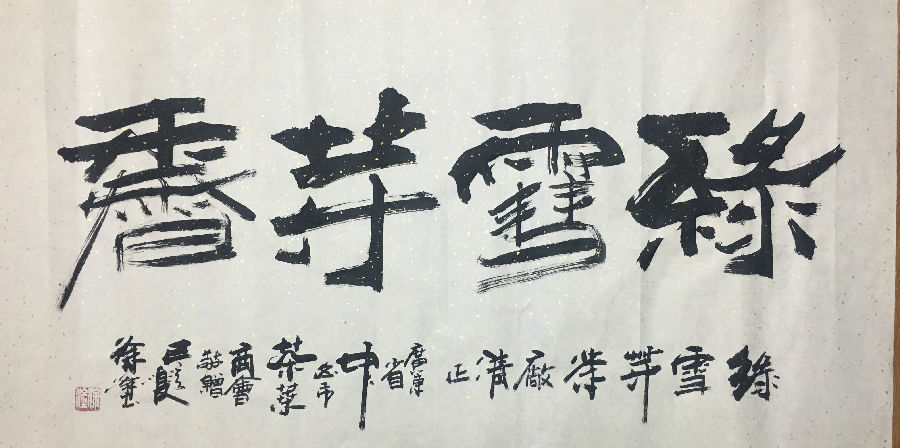 綠雪芽香
綠雪芽茶廠清正
廣東省中山市茶葉商會敬贈
己夏
徐